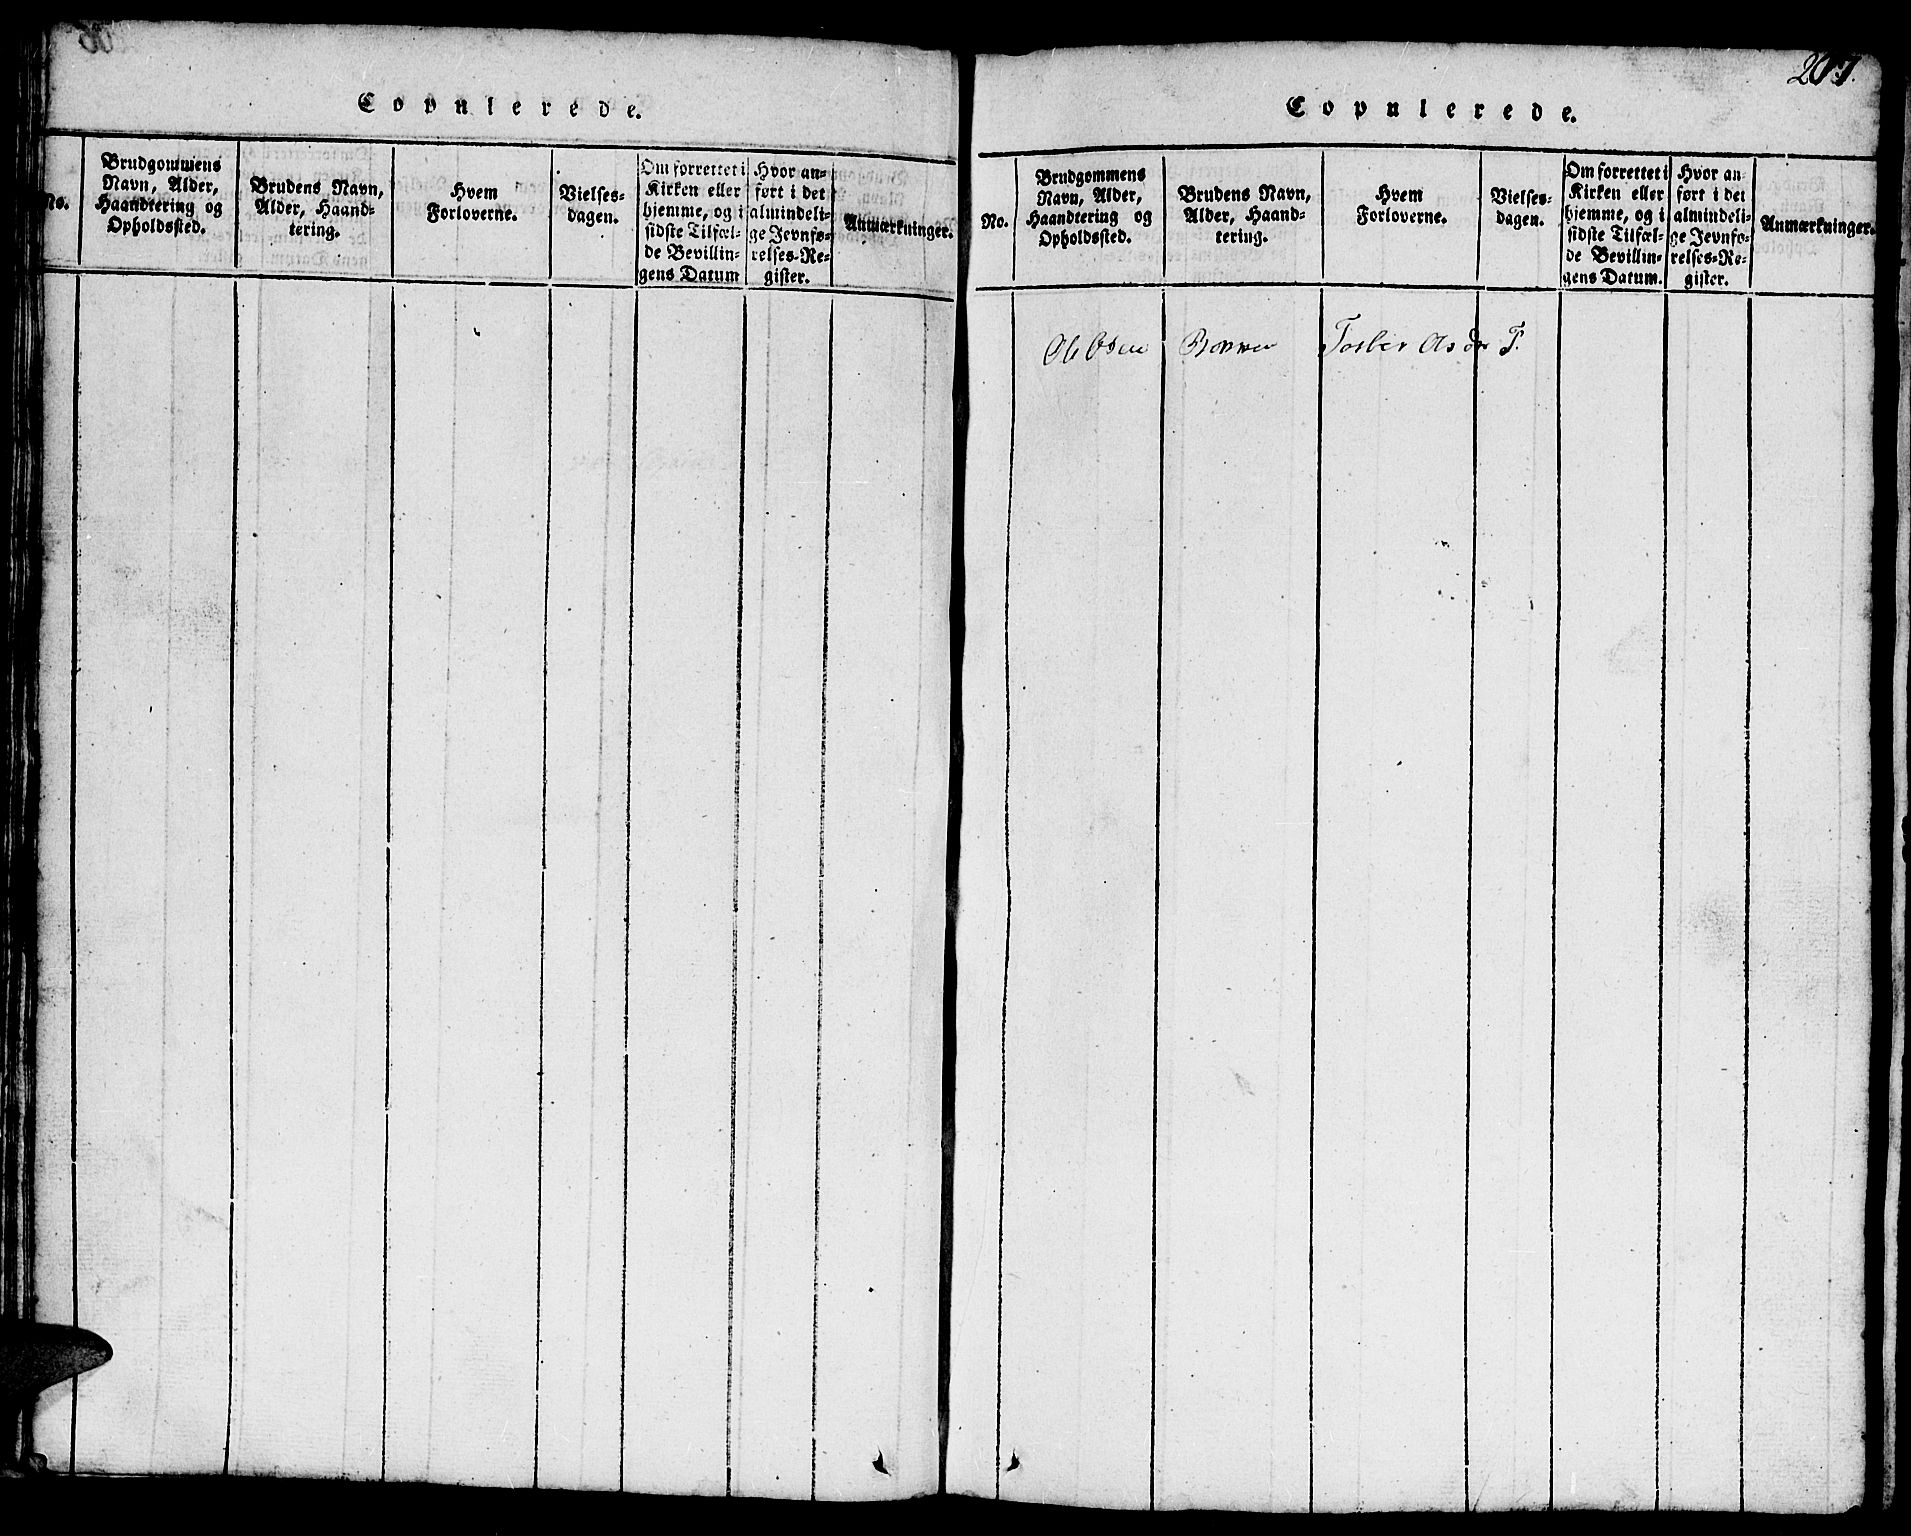 Copulerede.
No.
Brudgommens
Navn, Alder,
Haandtering og
Opholdssted.
Brudens Navn,
Alder, Haand-
tering.
Hvem
Forloverne.
Vielses-
dagen.
Om forrettet i
Kirken eller
hjemme, og i
sidste Tilfæl-
de Bevillin-
gens Datum
Hvor an-
ført i det
almindeli-
ge Jevnfø-
relses-Re-
gister.
Anmærkninger.
207.
Copulerede.
No.
Brudgommens
Navn, Alder,
Haandtering og
Opholdssted.
Brudens Navn,
Alder, Haand-
tering.
Hvem
Forloverne.
Vielses-
dagen.
Om forrettet i
Kirken eller
hjemme, og i
sidste Tilfæl-
de Bevillin-
gens Datum.
Hvor an-
ført i det
almindeli-
ge Jevnfø-
relses-Re-
gister.
Anmærkninger.